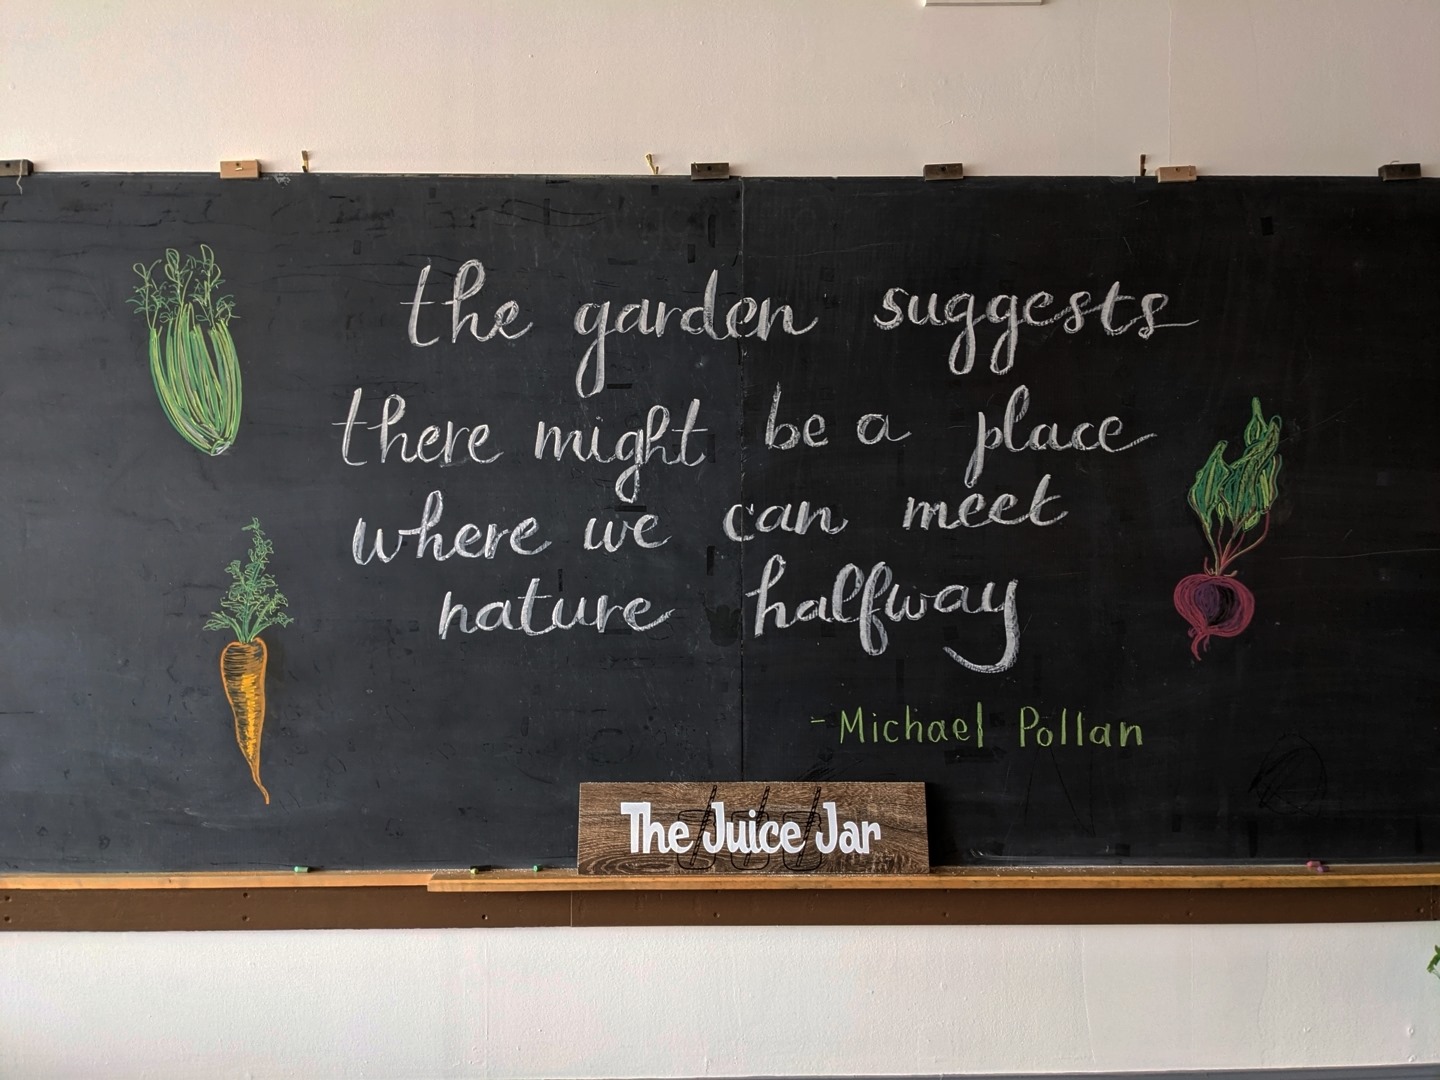 the garden suggests
there might be a place
where we can meet
nature halfway
-Michael Pollan
The Juice Jar